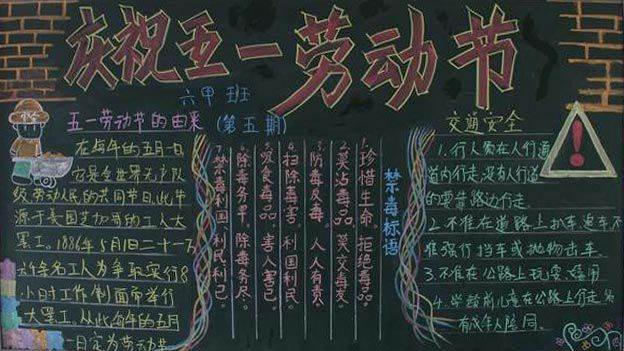 庆祝五一劳动节
六甲班
(第五期)
五一劳动节的由来
在每年的五月一
它是全世界无产阶
级、劳动人民的共同节日,此节
源于美国芝加哥的工人大
罢工。1886年5月1日二十一万
六千余名工人为争取实行8
小时工作制而举行
大罢工。从此每年的五月
一日定为劳动节
禁毒标语
1.珍惜生命。拒绝毒品。
2.莫沾毒品、莫交毒友。
3.防毒反毒、人人有责。
4.扫除毒害。利国利民。
5.吸食毒品、害人害己。
6.除毒务早、除毒务尽。
7.禁毒利国、利民、利己。
交通安全
1.行人需在人们道
道内行走,没有人行道
的要靠路边行走。
2.不准在道路上扒车、追车,不
准强行挡车或抛物击车。
3.不准在公路上玩耍、嬉闹
4.学龄前儿童在公路上行走
有成年人陪同。